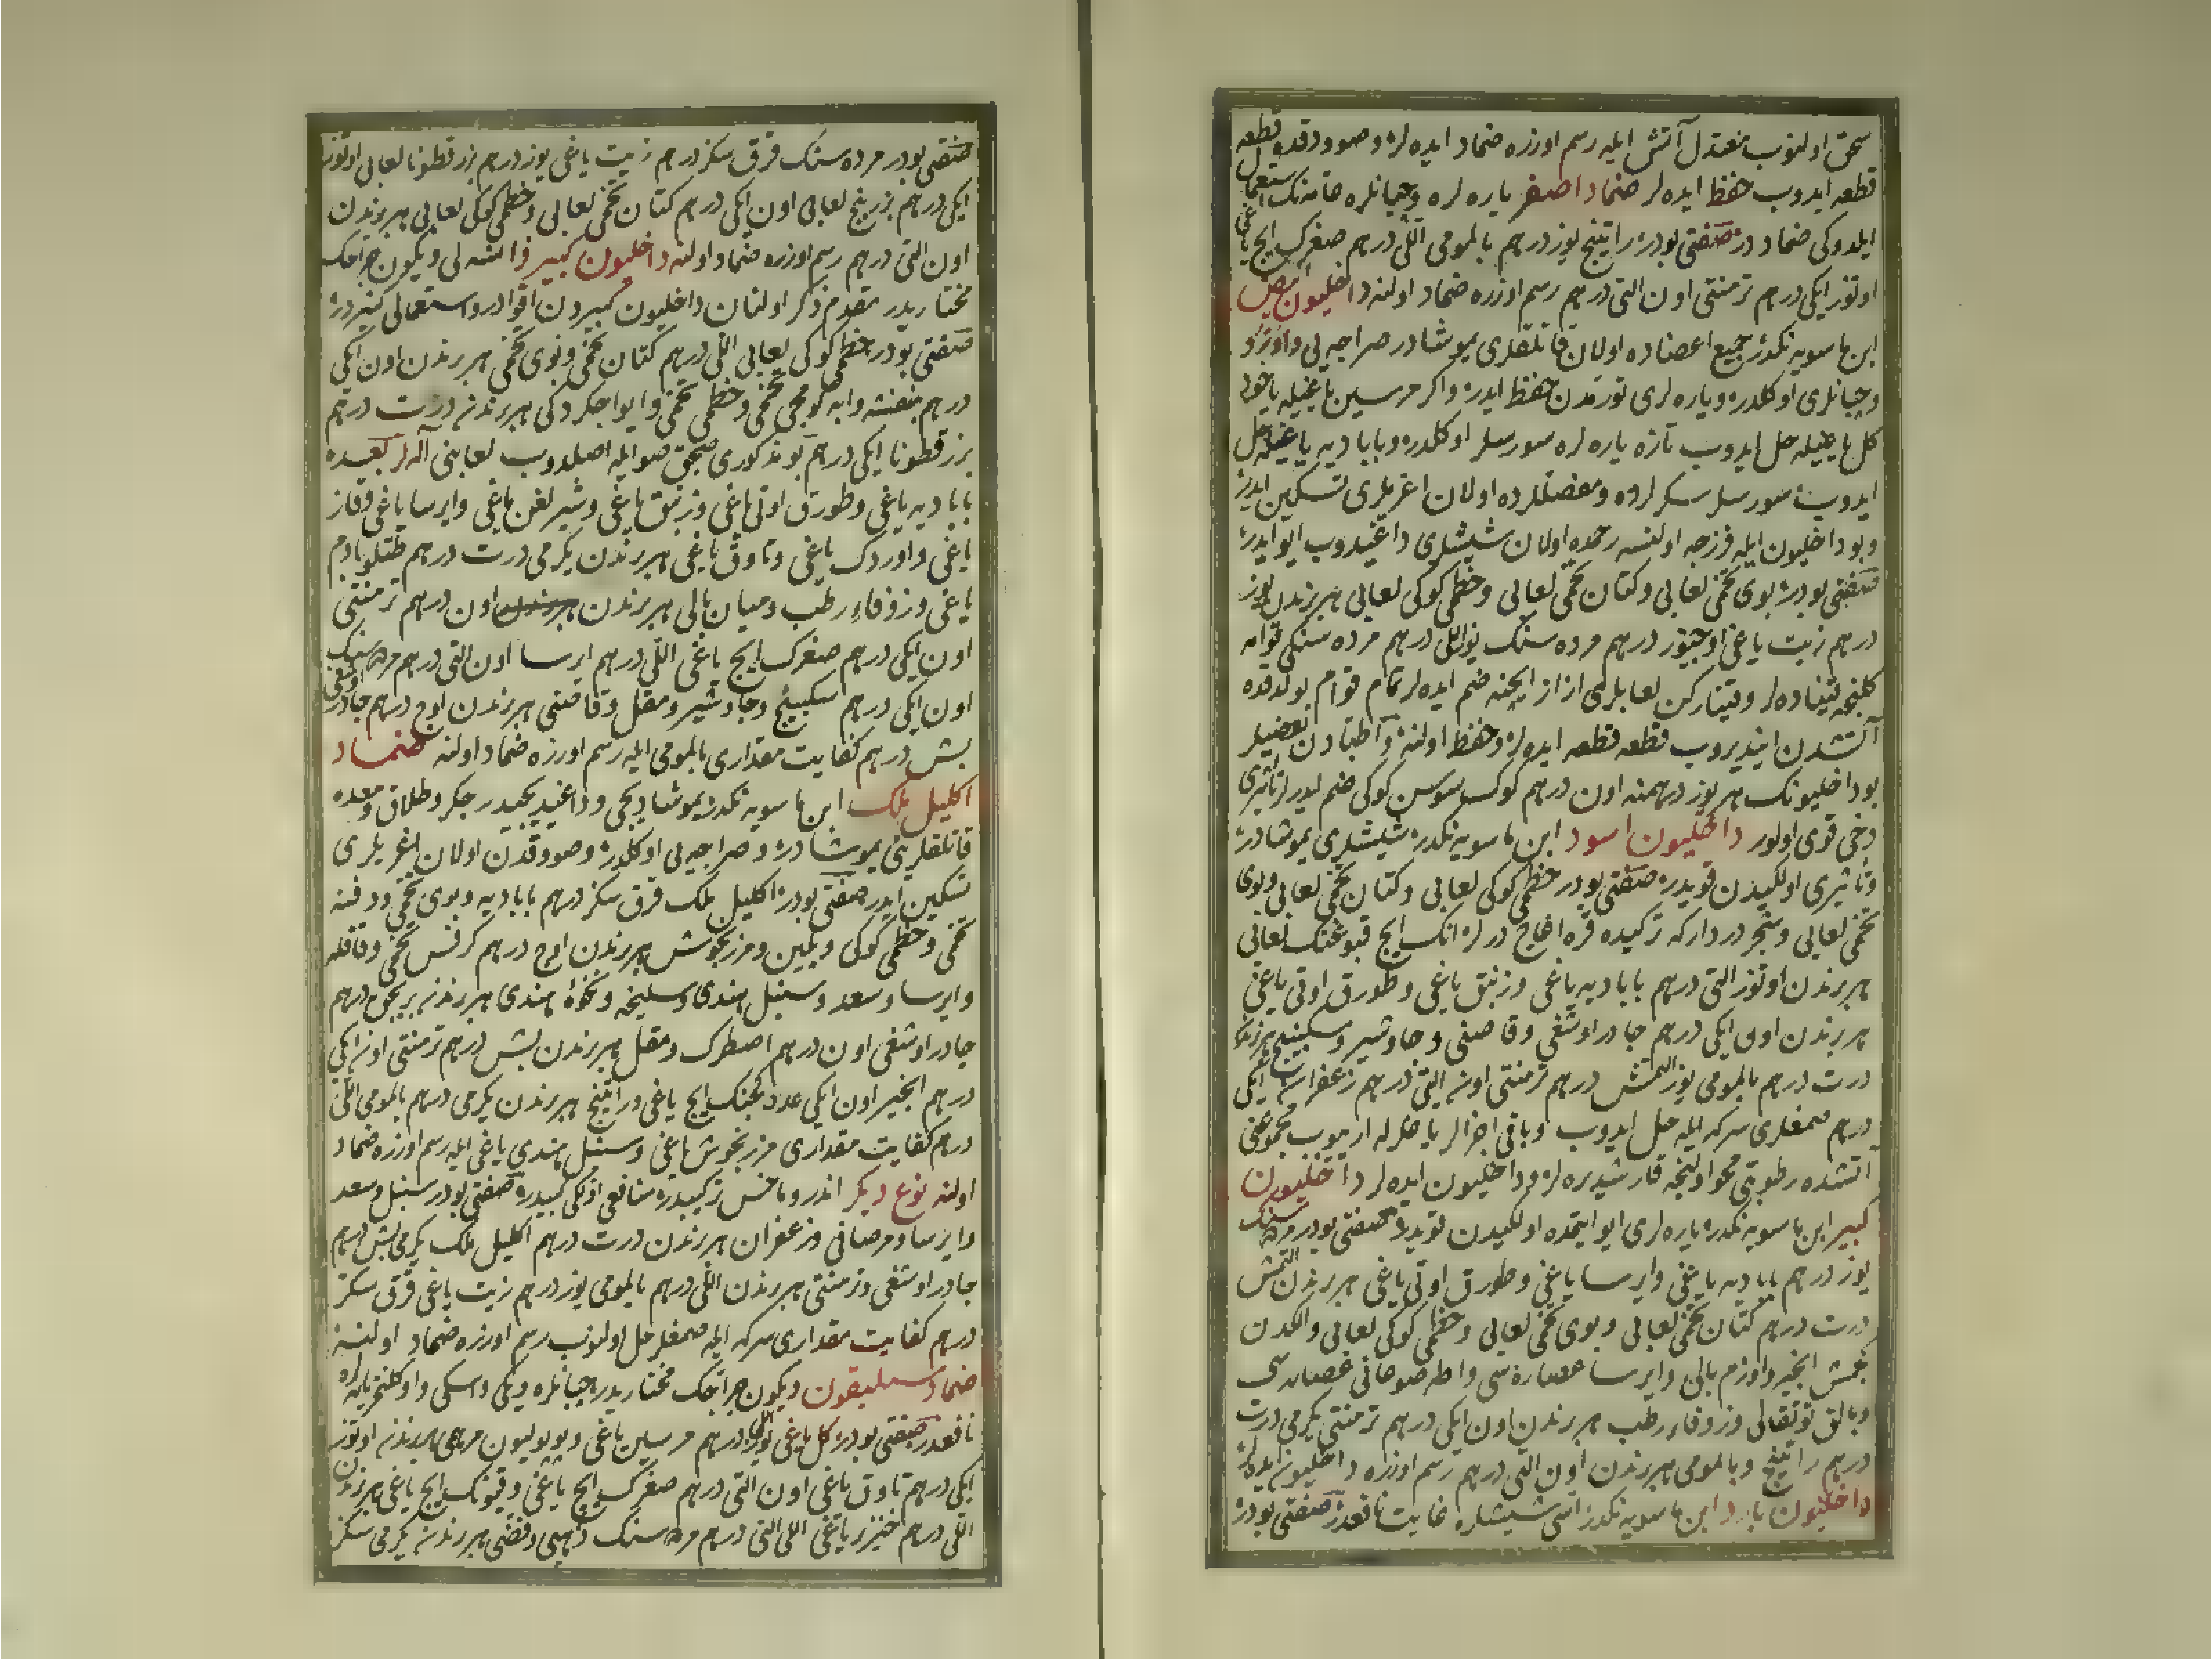 سحق اولنوب معتدل آتش ایله رسم اوزره ضماد ایده لر و صوودقده قطعه
قطعه ایدوب حفظ ایده لر ضماد اصفر یاره لره و چبانلره عامه نك استعمال
ایلدوکی ضماد در صنعتی بودر راتینج یوز درهم بالمومی اللی درهم صغرك ایچ یاغی
اوتوز ایکی درهم ترمنتی اون التی درهم رسم اوزره ضماد اولنه داخلیون ابیض
ابن ماسویه نکدر جمیع اعضاده اولان قاتلقلری یموشادر صراجه یی
و چبانلری اوکلدر و یاره لری تورمدن حفظ ایدر و اکر مرسین یاغیله یاخود
کل یاغیله حل ایدوب تازه یاره لره سورسلر اوکلدر و بابادیه یاغیله حل
ایدوب سورسلر سکرلرده و مفصللرده اولان اغریلری تسکین ایدر
و بو داخلیون ایله فرزجه اولنسه رحمده اولان شیشلری داغیدوب ایو ایدر
صنعتی بودر بوی تخمی لعابی و کتان تخمی لعابی و خطمی کوکی لعابی هر برندن یوز
درهم زیت یاغی اوچیوز درهم مرده سنك یوز اللی درهم مرده سنکی قوامه
کلنجه قیناده لر و قینارکن لعابلری از از ایچنه ضم ایده لر تمام قوام بولدقده
آتشدن ایندیروب قطعه قطعه ایده لر و حفظ اولنه و اطبادن بعضیلر
بو داخلیونك هر یوز درهمنه اون درهم کوك سوسن کوکی ضم ایدرلر تأثیری
دخی قوی اولور داخلیون اسود ابن ماسویه نکدر شیشلری یموشادر
و تأثیری اولکیدن قویدر صنعتی بودر خطمی کوکی لعابی و کتان تخمی لعابی و بوی
تخمی لعابی و شجر دردار که ترکیده قره اغاج درلر انك ایچ قبوغنك لعابی
هر برندن اوتوز التی درهم بابادیه یاغی و زنبق یاغی و طورق اوتی یاغی
هر برندن اون ایکی درهم جادر اوشغی و قاصنی و جاوشیر و سکبینج هر برندن
درت درهم بالمومی یوز التمش درهم ترمنتی اون التی درهم زعفران ایکی
درهم صمغلری سرکه ایله حل ایدوب و باقی اجزالر یاغلرله اریوب مجموعنی
آتشده رطوبتی محو اولنجه قارشدیره لر و داخلیون ایده لر داخلیون
کبیر ابن ماسویه نکدر یاره لری ایو ایتمده اولکیدن قویدر صنعتی بودر مرده سنك
یوز درهم بابادیه یاغی و ایرسا یاغی و طورق اوتی یاغی هر برندن التمش
درت درهم کتان تخمی لعابی و بوی تخمی لعابی و خطمی کوکی لعابی و
یمش انجیر و اوزم بالی و ایرسا عصاره سی و اطه صوغانی عصاره سی
و بالق توتقالی و زوفاء رطب هر برندن اون ایکی درهم ترمنتی یکرمی درت
درهم راتینج و بالمومی هر برندن اون التی درهم رسم اوزره داخلیون ایده لر
داخلیون بارد ابن ماسویه نکدر اسی شیشلره غایت نافعدر صنعتی بودر
صنعتی بودر مرده سنك قرق سکز درهم زیت یاغی یوز درهم بزر قطونا لعابی اوتوز
ایکی درهم بزر بنج لعابی اون ایکی درهم کتان تخمی لعابی و خطمی کوکی لعابی هر برندن
اون التی درهم رسم اوزره ضماد اولنه داخلیون کبیر دیکون جراحك
مختاریدر مقدم ذکر اولنان داخلیون کبیردن اقوادر و استعمالی کثیردر
صنعتی بودر خطمی کوکی لعابی اللی درهم کتان تخمی و بوی تخمی هر برندن اون ایکی
درهم بنفشه و ابه کومجی تخمی و خطمی تخمی و ایوا جکردکی هر برندن درت درهم
بزر قطونا ایکی درهم بو مذکوری صجق صو ایله اصلدوب لعابنی آله لر بعده
بابادیه یاغی و طورق اوتی یاغی و زنبق یاغی و شیرلغن یاغی و ایرسا یاغی و قاز
یاغی و اوردك یاغی و تاوق یاغی هر برندن یکرمی درت درهم طتلو بادم
یاغی و زوفاء رطب و میان بالی هر برندن اون درهم ترمنتی
اون ایکی درهم صغرك ایچ یاغی اللی درهم ایرسا اون التی درهم مرده سنك
اون ایکی درهم سکبینج و جاوشیر و مقل و قاصنی هر برندن اوچ درهم جادر اوشغی
بش درهم کفایت مقداری بالمومی ایله رسم اوزره ضماد اولنه ضماد
اکلیل ملك ابن ماسویه نکدر یموشادیجی و داغیدیجیدر جکر و طلاق و معده
قاتلقلرینی یموشادر و صراجه یی اوکلدر و صووقدن اولان اغریلری
تسکین ایدر صنعتی بودر اکلیل ملك قرق سکز درهم بابادیه و بوی تخمی و دفنه
تخمی و خطمی کوکی و یمین و مرزنجوش هر برندن اوچ درهم کرفس تخمی و قاقله
و ایرسا و سعد و سنبل هندی و سلیخه و نخوه هندی هر برندن بر بچق درهم
جادر اوشغی اون درهم اصطرك و مقل هر برندن بش درهم ترمنتی اون ایکی
درهم انجیر اون ایکی عدد کجینك ایچ یاغی و راتینج هر برندن یکرمی درهم بالمومی اللی
درهم کفایت مقداری مرزنجوش یاغی و سنبل هندی یاغی ایله رسم اوزره ضماد
اولنه نوع دیکر اندروماخس ترکیبیدر منافعی اولکی کبیدر صنعتی بودر سنبل و سعد
و ایرسا و مر صافی و زعفران هر برندن درت درهم اکلیل ملك یکرمی بش درهم
جادر اوشغی و ترمنتی هر برندن اللی درهم بالمومی یوز درهم زیت یاغی قرق سکز
درهم کفایت مقداری سرکه ایله صمغلر حل اولنوب رسم اوزره ضماد اولنه
ضماد سلیقون دیکون جراحك مختاریدر چبانلره و یکی و اسکی یاره لره
نافعدر صنعتی بودر کل یاغی درهم مرسین یاغی و پوپولیون مرهمی هر برندن اوتوز
ایکی درهم تاوق یاغی اون التی درهم صغرك ایچ یاغی و قیونك ایچ یاغی هر برندن
اللی درهم خنزیر یاغی اللی التی درهم مرده سنك ذهبی و فضی هر برندن یکرمی سکز